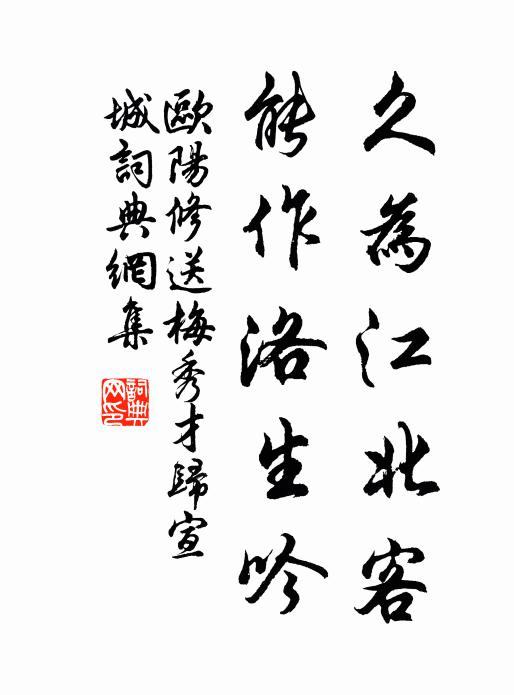 久為江北客
能作洛生吟
歐陽修送梅秀才歸宣
城詞典網集
詞典
网印